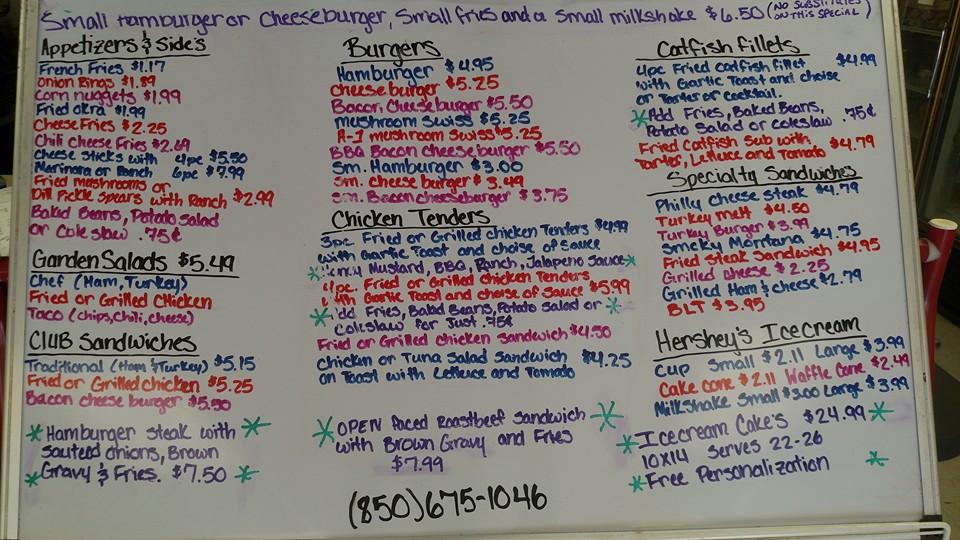 Small Hamburger or Cheeseburger, Small fries and a Small milkshake $6.50 (NO SUBSTITUTES ON THIS SPECIAL)
Appetizers & Side's
French Fries $1.17
Onion Rings $1.89
Corn nuggets $1.99
Fried okra $1.99
Cheese Fries $2.25
Chili cheese Fries $2.69
Cheese Sticks with 4pc $5.50
Marinara or Ranch 6pc $7.99
Fried mushrooms or
Dill Pickle Spears with Ranch $2.99
Baked Beans, Potato Salad
or Cole slaw .75¢
Garden Salads $5.49
Chef (Ham, Turkey)
Fried or Grilled Chicken
Taco (chips, chili, cheese)
Club Sandwiches
Traditional (Ham & Turkey) $5.15
Fried or Grilled chicken $5.25
Bacon cheese burger $5.50
Hamburger steak with
sauteed onions, Brown
Gravy & Fries. $7.50
Burgers
Hamburger $4.95
Cheeseburger $5.25
Bacon Cheeseburger $5.50
mushroom Swiss $5.25
A-1 mushroom Swiss $5.25
BBQ Bacon cheeseburger $5.50
Sm. Hamburger $3.00
Sm. cheese burger $3.49
Sm. Bacon cheeseburger $3.75
Chicken Tenders
3pc Fried or Grilled chicken Tenders $4.99
with Garlic Toast and choise of Sauce
Honey Mustard, BBQ, Ranch, Jalapeno Sauce
4pc. Fried or Grilled chicken Tenders
with Garlic Toast and choise of Sauce $5.99
Add Fries, Baked Beans, Potato Salad or
Coleslaw for Just .75¢
Fried or Grilled chicken Sandwich $4.50
Chicken or Tuna Salad Sandwich $4.25
on Toast with Lettuce and Tomato
OPEN Faced Roastbeef Sandwich
with Brown Gravy and Fries
$7.99
(850)675-1046
Catfish Fillets
4pc Fried catfish fillet $4.99
with Garlic Toast and choise
or Tarter or cocktail.
Add Fries, Baked Beans, .75¢
Potato Salad or coleslaw
Fried Catfish Sub with $4.79
Tarter, Lettuce and Tomato
Specialty Sandwiches
Philly Cheese Steak $4.79
Turkey melt $4.50
Turkey Burger $3.99
Smoky Montana $4.75
Fried Steak Sandwich $4.95
Grilled cheese $2.25
Grilled Ham & cheese $2.79
BLT $3.95
Hershey's Ice cream
Cup Small $2.11 Large $3.99
Cake cone $2.11 Waffle Cone $2.49
Milkshake Small $3.00 Large $3.99
Icecream Cake's $24.99
10x14 Serves 22-26
Free Personalization